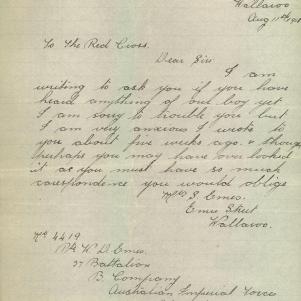 Wallaroo
Aug 11th
To The Red Cross.
Dear Sir
I am
writing to ask you if you have
heard anything of our boy yet
I am sorry to trouble you but
I am very anxious I wrote to
you about five weeks ago. & though
perhaps you may have over looked
it as you must have so much
corespondence you would oblige
Mrs S. Emes.
Emes Street
Wallaroo.
No 4419
Pte W D Emes.
Battalion
B. Company
Australian Imperial Force